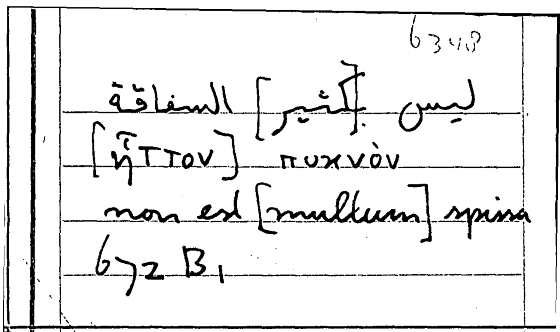 6348
ليس [بكثير] السفاقة
[ἧττον] πυκνὸν
non est [multum] spissa
672 B1